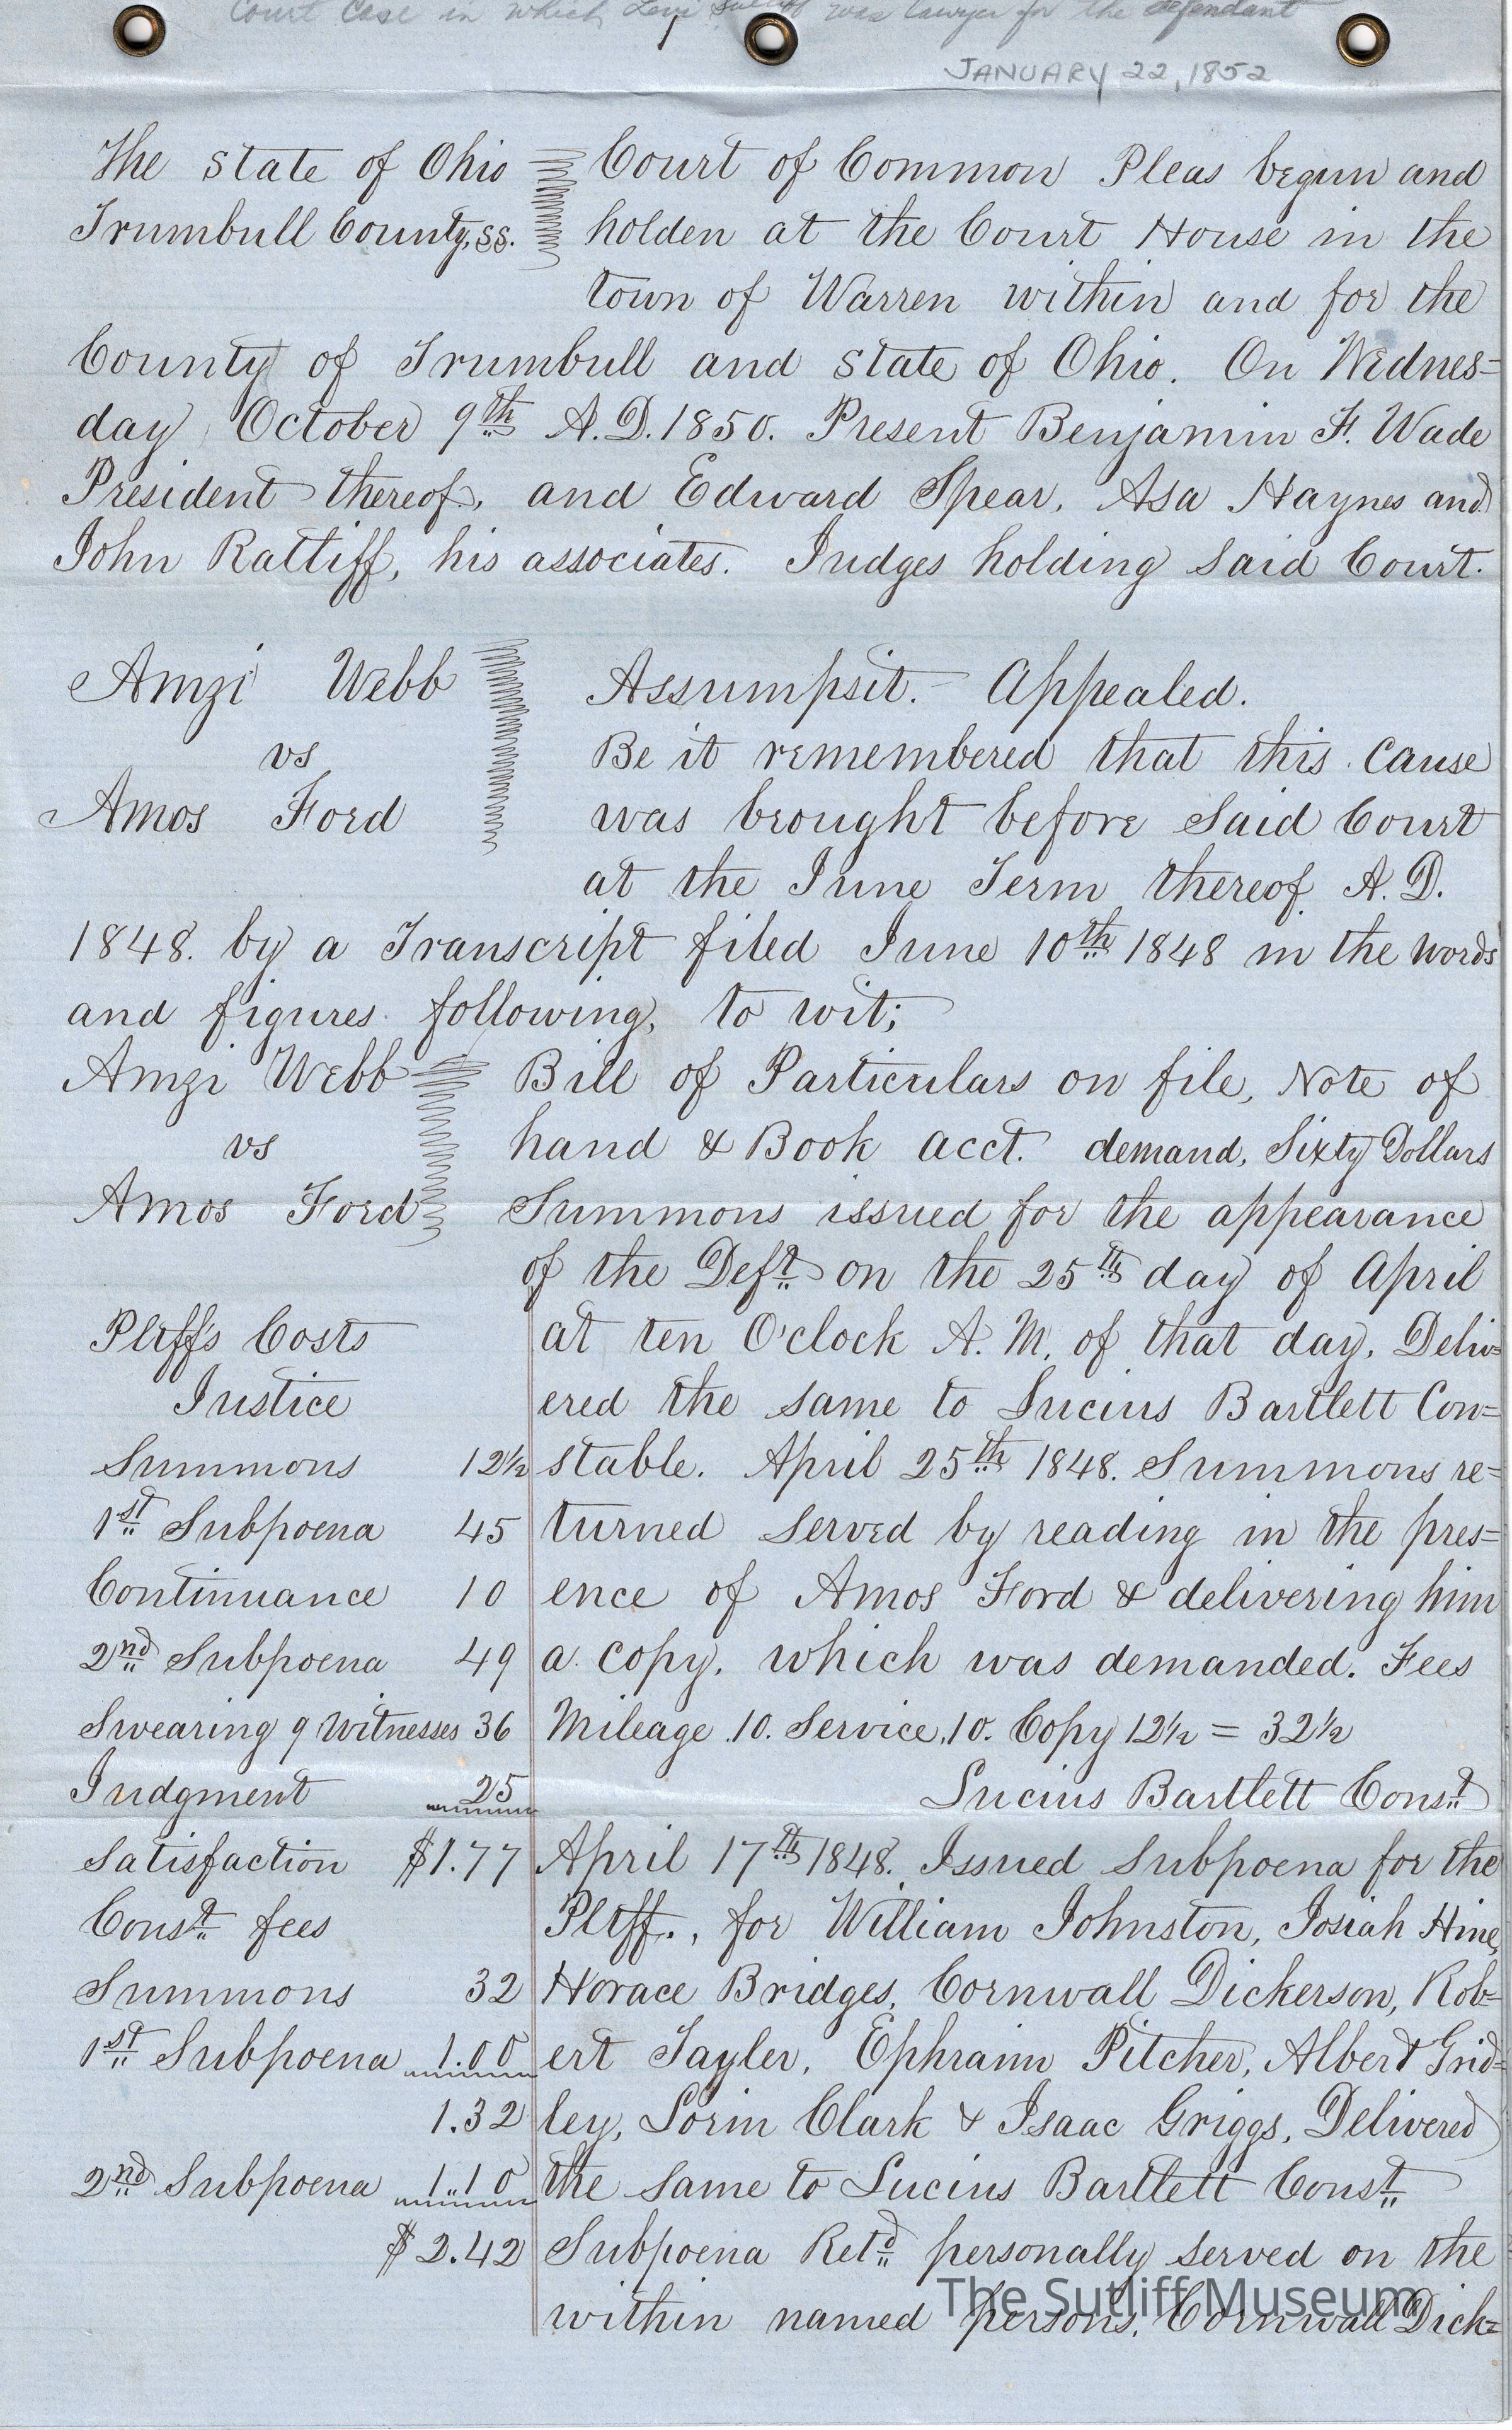 Court Case in which Levi Sutliff was lawyer for the defendant
JANUARY 22, 1852
The State of Ohio Court of Common Pleas begun and
Trumbull County, ss. holden at the Court House in the
town of Warren within and for the
County of Trumbull and State of Ohio. On Wednes=
day October 9th A.D. 1850. Present Benjamin F. Wade
President thereof, and Edward Spear, Asa Haynes and
John Ratliff, his associates. Judges holding said Court.
Amzi Webb Assumpsit. Appealed.
vs Be it remembered that this cause
Amos Ford was brought before said Court
at the June Term thereof A.D.
1848. by a Transcript filed June 10th 1848 in the words
and figures following, to wit;
Amzi Webb Bill of Particulars on file, Note of
vs hand & Book acct. demand, Sixty Dollars
Amos Ford Summons issued for the appearance
of the Deft on the 25th day of April
Pltff's Costs at ten O'clock A.M. of that day, Deliv=
Justice ered the same to Lucius Bartlett Con=
Summons 12½ stable. April 25th 1848. Summons re=
1st Subpoena 45 turned served by reading in the pres=
Continuance 10 ence of Amos Ford & delivering him
2nd Subpoena 49 a copy, which was demanded. Fees
Swearing 9 Witnesses 36 Mileage .10. Service,.10. Copy 12½ = 32½
Judgment 25 Lucius Bartlett Const
Satisfaction $1.77 April 17th 1848. Issued Subpoena for the
Const fees Pltff., for William Johnston, Josiah Hine,
Summons 32 Horace Bridges, Cornwall Dickerson, Rob=
1st Subpoena 1.00 ert Tayler, Ephraim Pitcher, Albert Grid=
1.32 ley, Lorin Clark & Isaac Griggs, Delivered
2nd Subpoena 1.10 the same to Lucius Bartlett Const
$2.42 Subpoena Retd personally served on the
within named persons, Cornwall Dick=
The Sutliff Museum